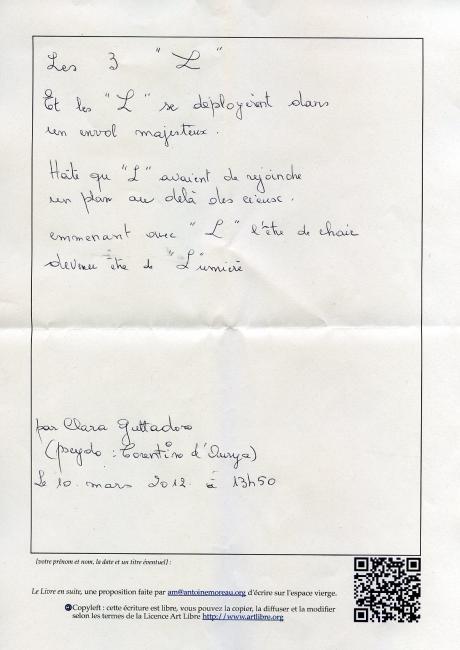 Les 3 "L"
Et les "L" se déployèrent dans
un envol majesteux.
Hâte qu "L" avaient de rejoindre
un plan au delà des cieux.
emmenant avec "L" l'être de chair
devenu être de "L"umière
par Clara Guttadoro
(pseydo : Corentine d'Aurya)
Le 10 mars 2012 à 13h50
[votre prénom et nom, la date et un titre éventuel] :
Le Livre en suite, une proposition faite par am@antoinemoreau.org d'écrire sur l'espace vierge.
Copyleft : cette écriture est libre, vous pouvez la copier, la diffuser et la modifier
selon les termes de la Licence Art Libre http://www.artlibre.org